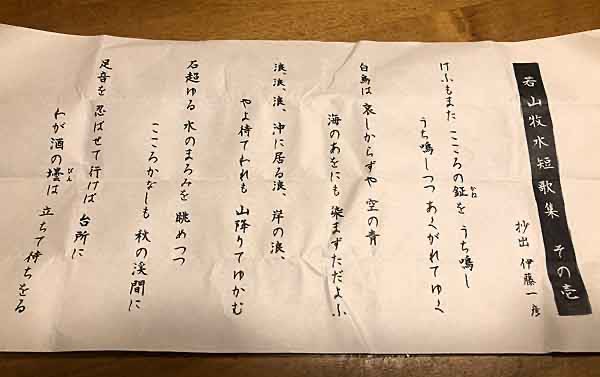 若山牧水短歌集 その壱
抄出 伊藤一彦
けふもまた こころの鉦を うち鳴し
かね
うち鳴しつつ あくがれてゆく
白鳥は 哀しからずや 空の青
海のあをにも 染まずただよふ
浪、浪、浪、沖に居る浪、岸の浪、
やよ待てわれも 山降りてゆかむ
石超ゆる 水のまろみを 眺めつつ
こころかなしも 秋の渓間に
足音を 忍ばせて行けば 台所に
わが酒の壜は 立ちて待ちをる
びん